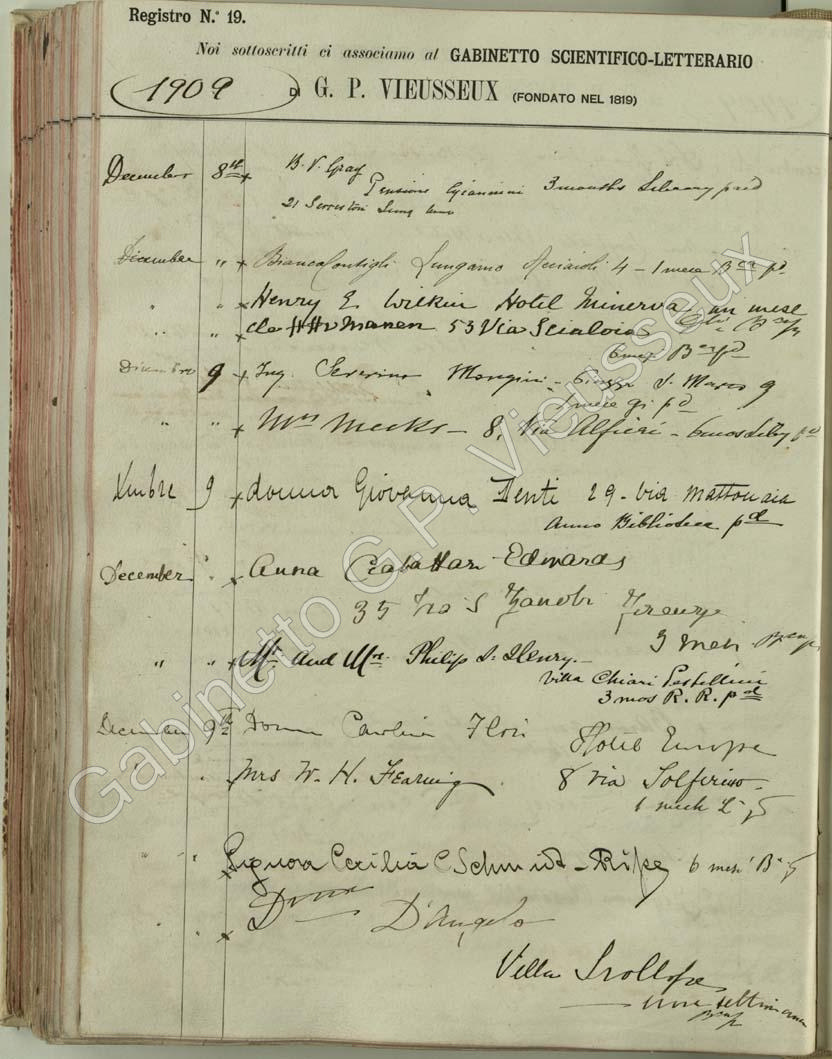 Registro N.° 19.
Noi sottoscritti ci associamo al GABINETTO SCIENTIFICO-LETTERARIO
1909 DI G. P. VIEUSSEUX (FONDATO NEL 1819)
December 8th B. V. Graf
Pensione Giannini 3 months Library paid
21
Dicembre " Bianca Lungarno Acciaioli 4 - 1 mese pd
" " Henry E. Wilkin Hotel Minerva un mese
" " 53 Via Scialoia
6 mesi pd
Dicembre 9 Ing. Severino Mongini - Piazza S. Marco 9
1 mese pd
" " Mrs Meeks - 8, Via Alfieri - 6 mos Liby pd
Xmbre 9 donna Giovanna Denti 29 - via Mattonaia
Anno Biblioteca pd
December " Anna Edwards
35 Via S Zanobi Firenze
3 mesi
" " Mr. and Mrs. Philip S. Henry. -
Villa Chiari Pestellini
3 mos R. R. pd
December 9th Donna Carolina
Hotel Europe
" " Mrs W. H. Fearing 8 Via Solferino
1
" " Signora Cecilia C Schmidt - 6 mesi
" D'Angelo
Villa Trollope
una settimana
Gabinetto G.P. Vieusseux